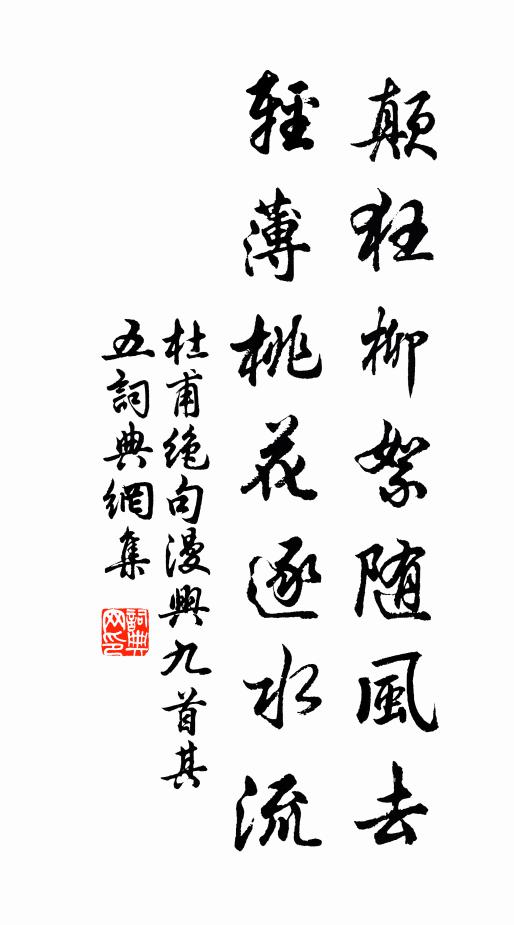 顛狂柳絮随風去
輕薄桃花逐水流
杜甫絶句漫興九首其
五詞典網集
詞典
网印